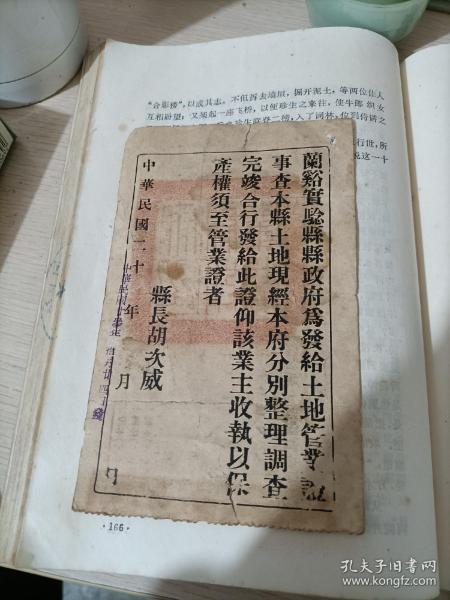 “合影楼”，以成其志。不但拆去墙垣，掘开泥土，等两位佳人
互相盼望，又架起一座飞桥，以便珍生之来往，使牛郎织女
蘭谿實驗縣縣政府爲發給土地管業證
事查本縣土地現經本府分別整理調查
完竣合行發給此證仰該業主收執以保
產權須至管業證者
縣長胡次威
中華民國二十 年 月
·166·
孔夫子旧书网
www.kongfz.com